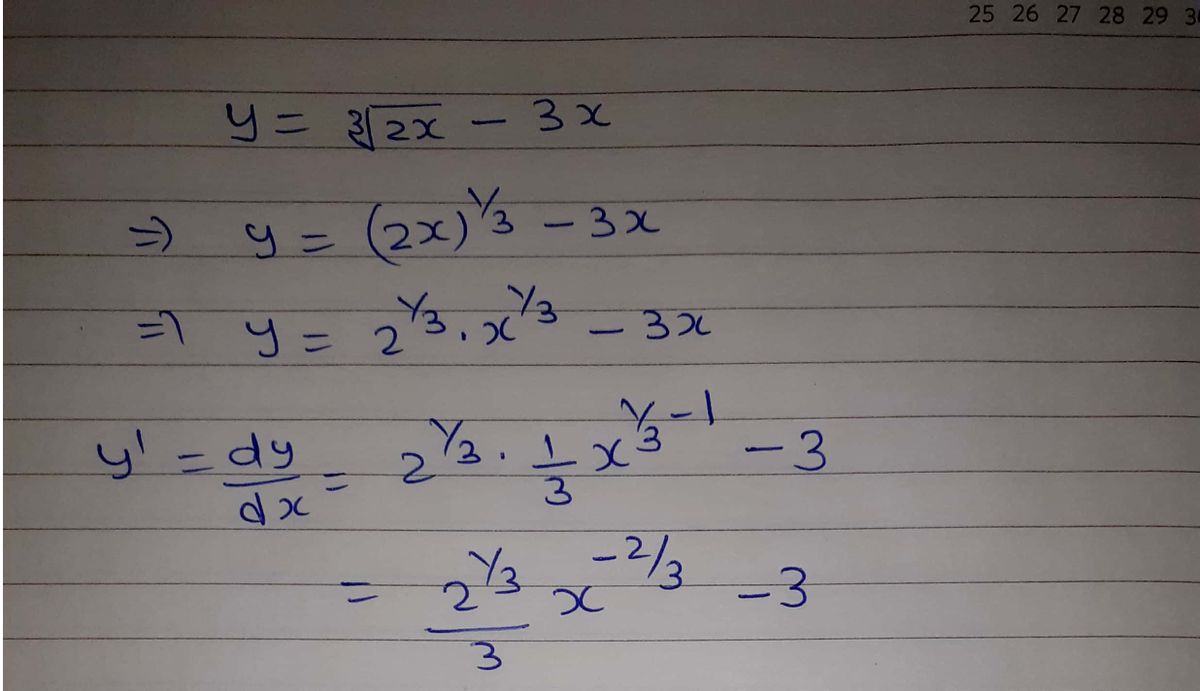 25 26 27 28 29
y = ∛2x − 3x
⇒ y = (2x)^1/3 − 3x
⇒ y = 2^1/3 . x^1/3 − 3x
y' = dy/dx = 2^1/3 . 1/3 x^1/3 − 1 − 3
= 2^1/3/3 x^−2/3 − 3